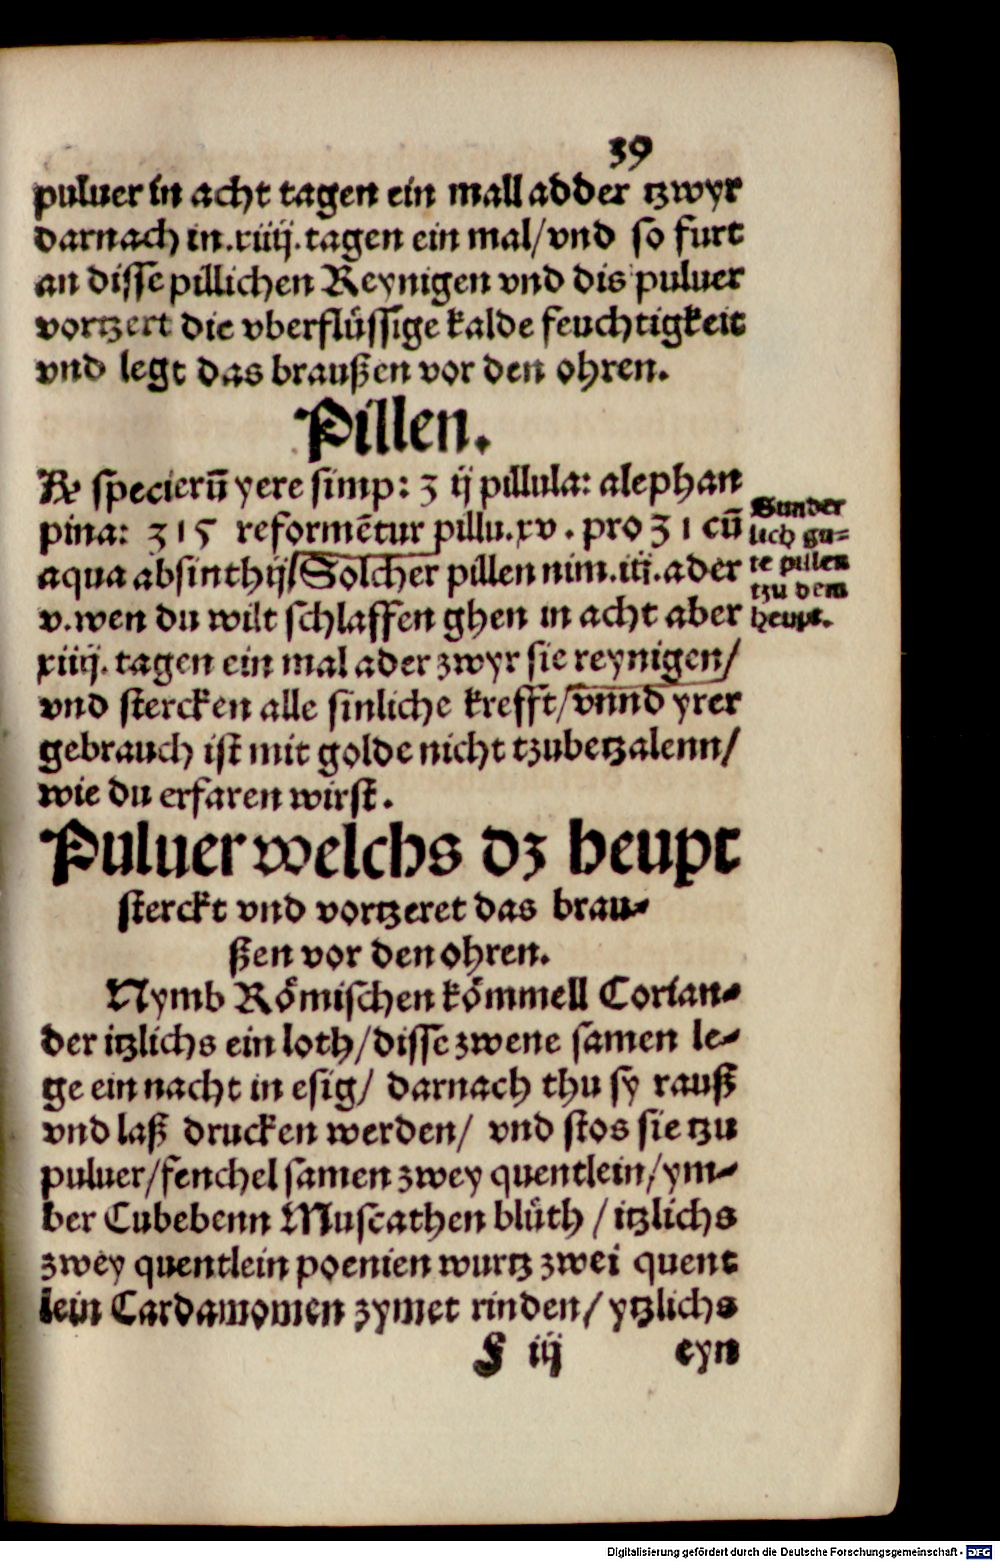 39
puluer in acht tagen ein mall adder tzwyr
darnach in.xiiij.tagen ein mal/vnd so furt
an disse pillichen Reynigen vnd dis puluer
vortzert die vberflüssige kalde feuchtigkeit
vnd legt das braußen vor den ohren.
Pillen.
℞ specierū yere simp: ʒ ij pillula: alephan
pina: ʒ 1 5 reformētur pillu.xv. pro ʒ 1 cū
aqua absinthij/Solcher pillen nim.iij.ader
v.wen du wilt schlaffen ghen in acht aber
xiiij. tagen ein mal ader zwyr sie reynigen/
vnd stercken alle sinliche krefft/vnnd yrer
gebrauch ist mit golde nicht tzubetzalenn/
wie du erfaren wirst.
Sunder
lich gu=
te pillen
tzu dem
heupt.
Puluer welchs dz heupt
sterckt vnd vortzeret das brau=
ßen vor den ohren.
Nymb Römischen kömmell Corian=
der itzlichs ein loth/disse zwene samen le=
ge ein nacht in esig/ darnach thu sy rauß
vnd laß drucken werden/ vnd stos sie tzu
puluer/fenchel samen zwey quentlein/ym=
ber Cubebenn Muscathen blüth / itzlichs
zwey quentlein poenien wurtz zwei quent
lein Cardamomen zymet rinden/ ytzlichs
F iij eyn
Digitalisierung gefördert durch die Deutsche Forschungsgemeinschaft - DFG